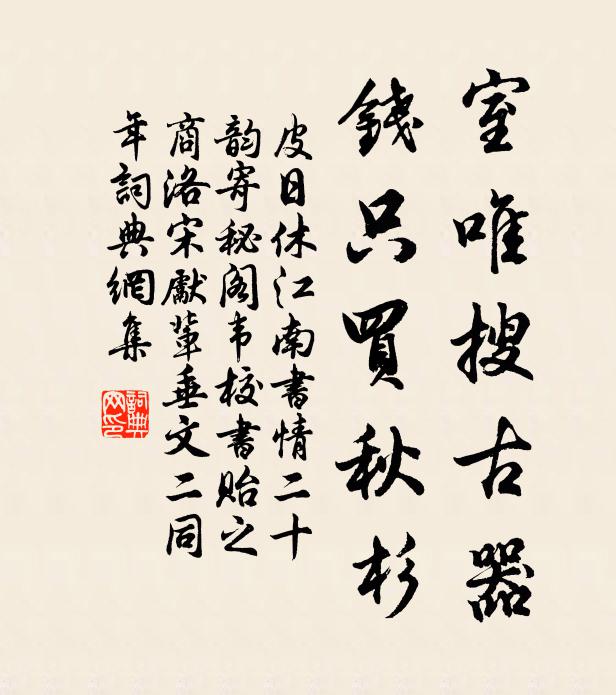 室唯搜古器
錢只買秋杉
皮日休江南書情二十
韵寄秘阁韦校書贻之
商洛宋獻輩垂文二同
年詞典網集
詞典網印